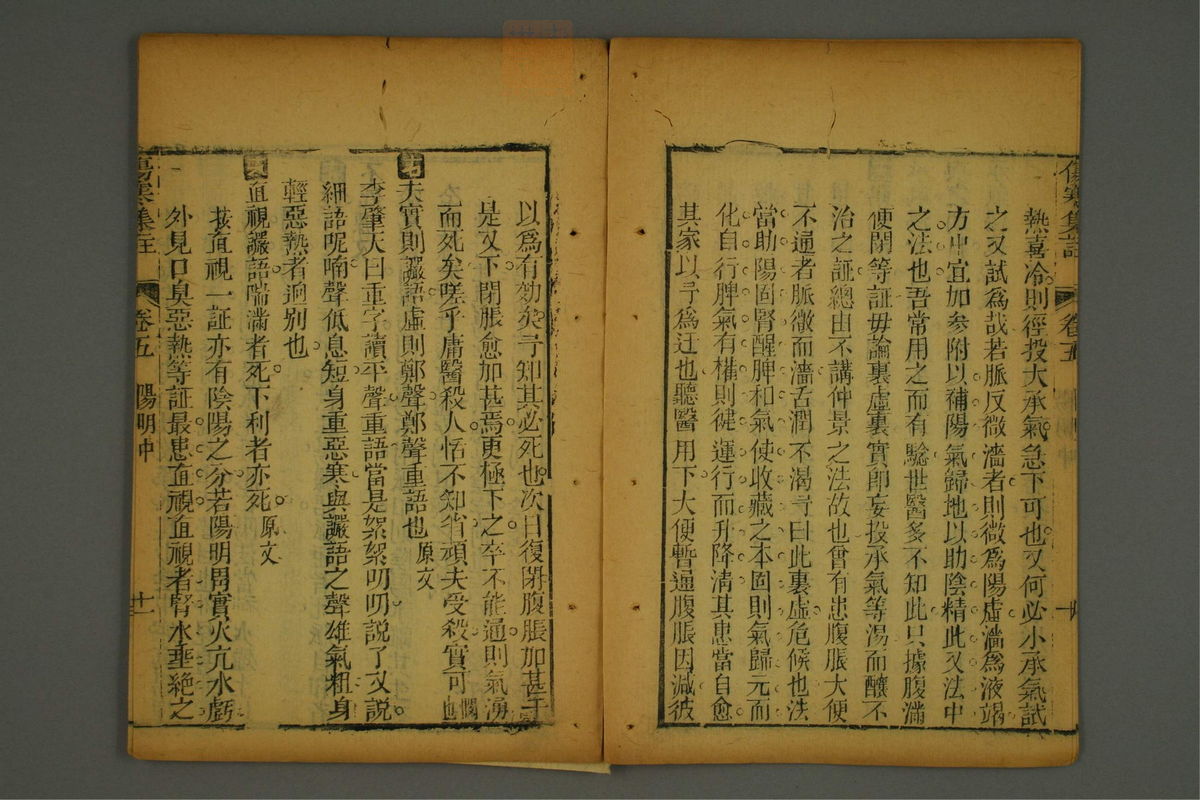 熱喜冷則徑投大承氣急下可也又何必小承氣試
之又試爲哉若脈反微濇者則微爲陽虛濇爲液竭
方中宜加參附以補陽氣歸地以助陰精此又法中
之法也吾常用之而有驗世醫多不知此只據腹滿
便閉等証毋論裏虛裏實即妄投承氣等湯而釀不
治之証總由不講仲景之法故也曾有患腹脹大便
不通者脈微而濇舌潤不渴予曰此裏虛危候也法
當助陽固腎醒脾和氣使收藏之本固則氣歸元而
化自行脾氣有權則健運行而升降清其患當自愈
其家以予爲迂也聽醫用下大便暫通腹脹因減彼
傷寒集註
卷五
以爲有効矣予知其必死也次日復閉腹脹加甚于
是又下閉脹愈加甚焉更極下之卒不能通則氣湧
而死矣嗟乎庸醫殺人恬不知省頑夫受殺實可憫也
夫實則讝語虛則鄭聲鄭聲重語也原文
李肇夫曰重字讀平聲重語當是絮絮叨叨說了又說
細語呢喃聲低息短身重惡寒與讝語之聲雄氣粗身
輕惡熱者迥別也
直視讝語喘滿者死下利者亦死原文
按直視一証亦有陰陽之分若陽明胃實火亢水虧
外見口臭惡熱等証最患直視直視者腎水垂絕之
傷寒集註
卷五
陽明中
十一